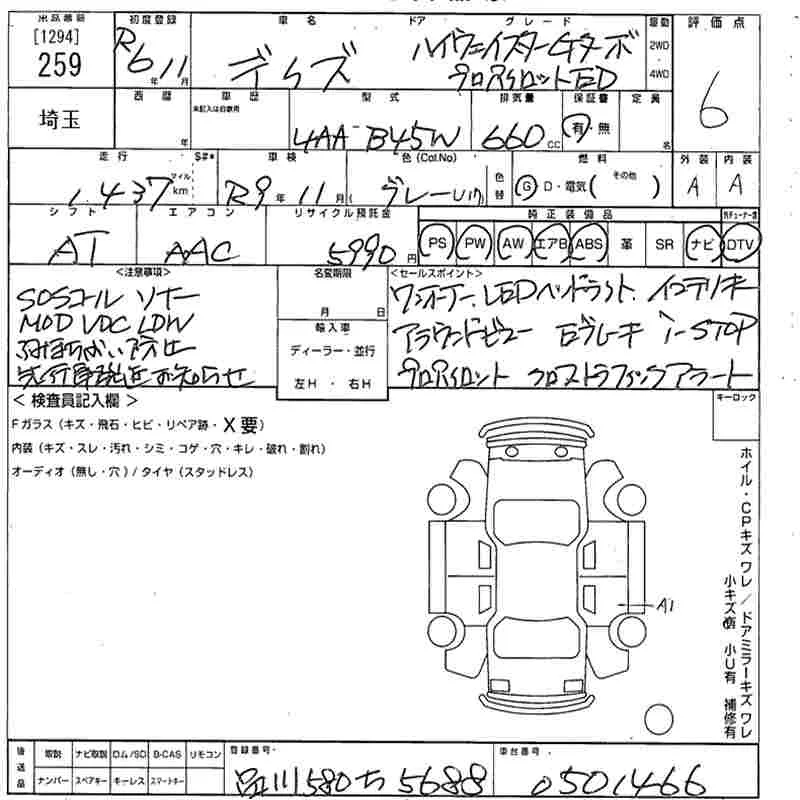 出品番号 初度登録 車名 ドア グレード 駆動 評価点
[1294] R6年11月 デイズ ハイウェイスターGターボ 2WD
259 プロパイロットED 4WD 6
埼玉 西暦 年 車歴 未記入は自家用 型式 排気量 保証書 定員
4AA-B45W 660cc 有・無 名
走行 S#* 車検 色(Col.No) 色替 燃料 外装 内装
1,437 マイル km R9年11月 グレー G D・電気(その他) A A
シフト エアコン リサイクル預託金 純正装備品
AT AAC 5990円 PS PW AW エアB ABS 革 SR ナビ DTV
<注意事項> 名変期限 <セールスポイント>
SOSコール ソナー 月 日 ワンオーナー LEDヘッドランプ インテリキー
MOD VDC LDW 輸入車 アラウンドビュー Eブレーキ i-STOP
踏み間違い防止 ディーラー・並行
先行車発進お知らせ 左H・右H プロパイロット クロストラフィックアラート
<検査員記入欄> キーロック
Fガラス(キズ・飛石・ヒビ・リペア跡・X要)
内装(キズ・スレ・汚れ・シミ・コゲ・穴・キレ・破れ・割れ)
オーディオ(無し・穴)/タイヤ(スタッドレス)
ホイル・CPキズ ワレ/ドアミラーキズ ワレ
小キズ 小U有 補修有
A1
後送品 取説 ナビ取説 ロム/SD B-CAS リモコン 登録番号 車台番号
ナンバー スペアキー キーレス スマートキー 品川 580 ち 5688 0501466